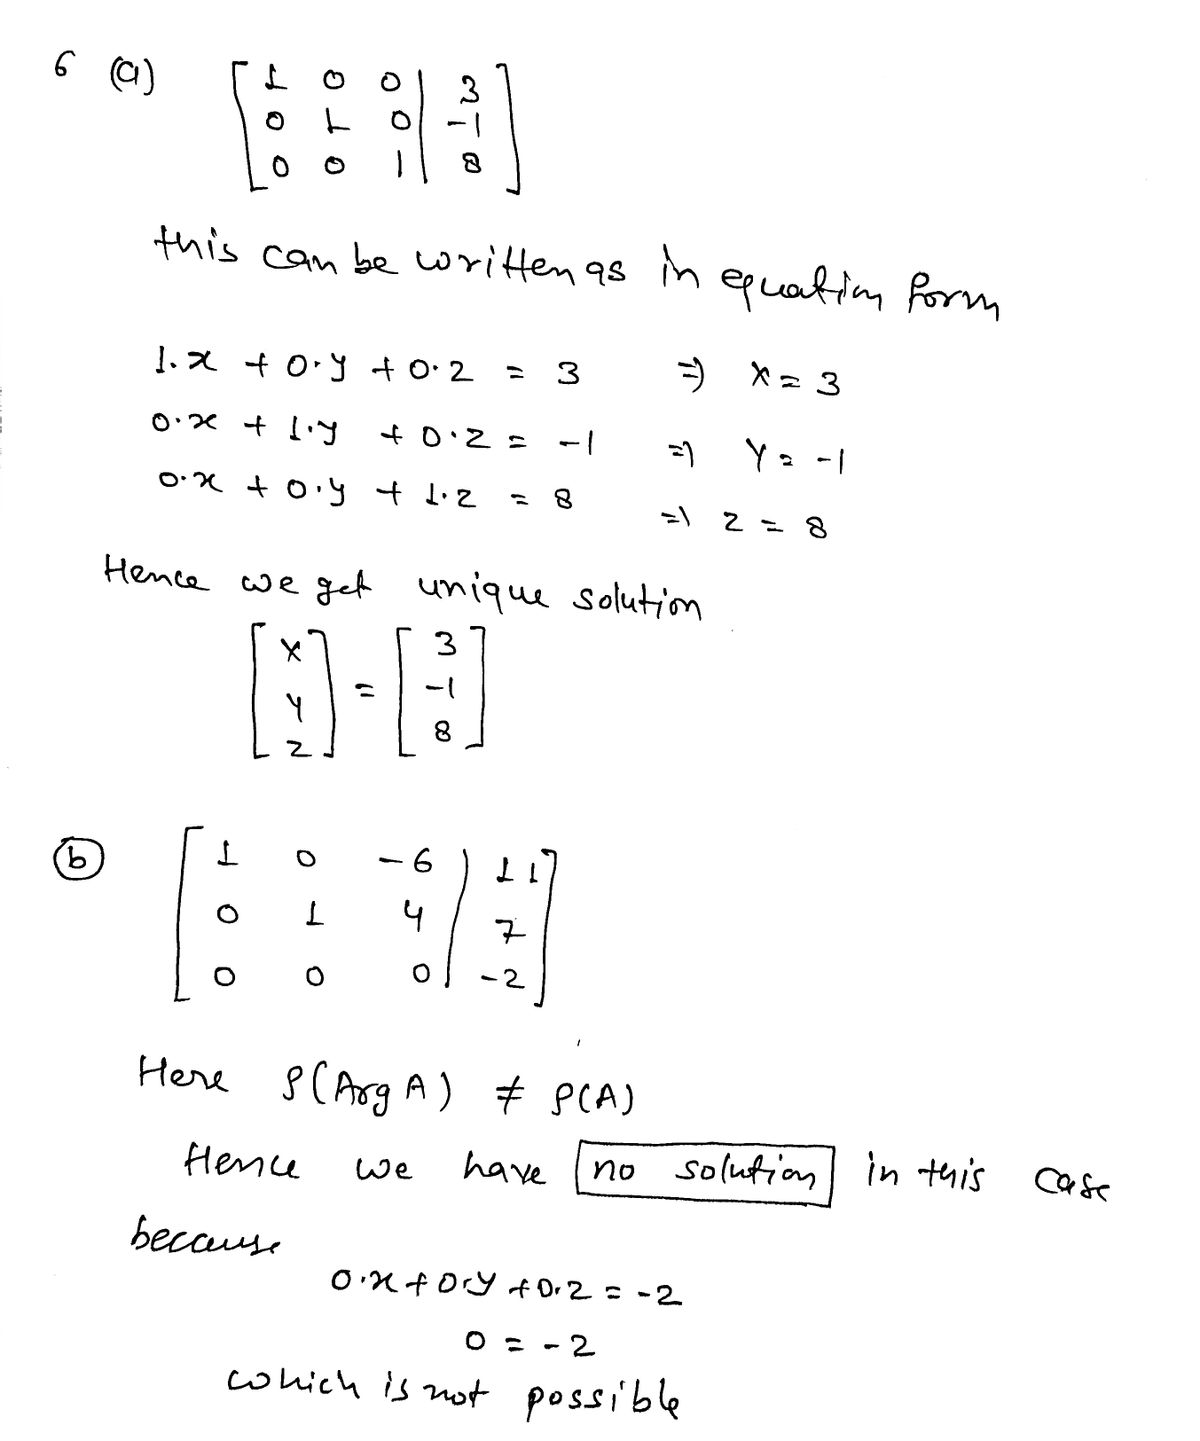 6 (a) [ 1 0 0 | 3 ]
[ 0 1 0 | -1 ]
[ 0 0 1 | 8 ]
this can be written as in equation form
1.x + 0.y + 0.z = 3 => x = 3
0.x + 1.y + 0.z = -1 => y = -1
0.x + 0.y + 1.z = 8 => z = 8
Hence we get unique solution
[ x ] = [ 3 ]
[ y ] [ -1 ]
[ z ] [ 8 ]
(b) [ 1 0 -6 | 11 ]
[ 0 1 4 | 7 ]
[ 0 0 0 | -2 ]
Here ρ(Arg A) ≠ ρ(A)
Hence we have no solution in this case
because
0.x + 0.y + 0.z = -2
0 = -2
which is not possible